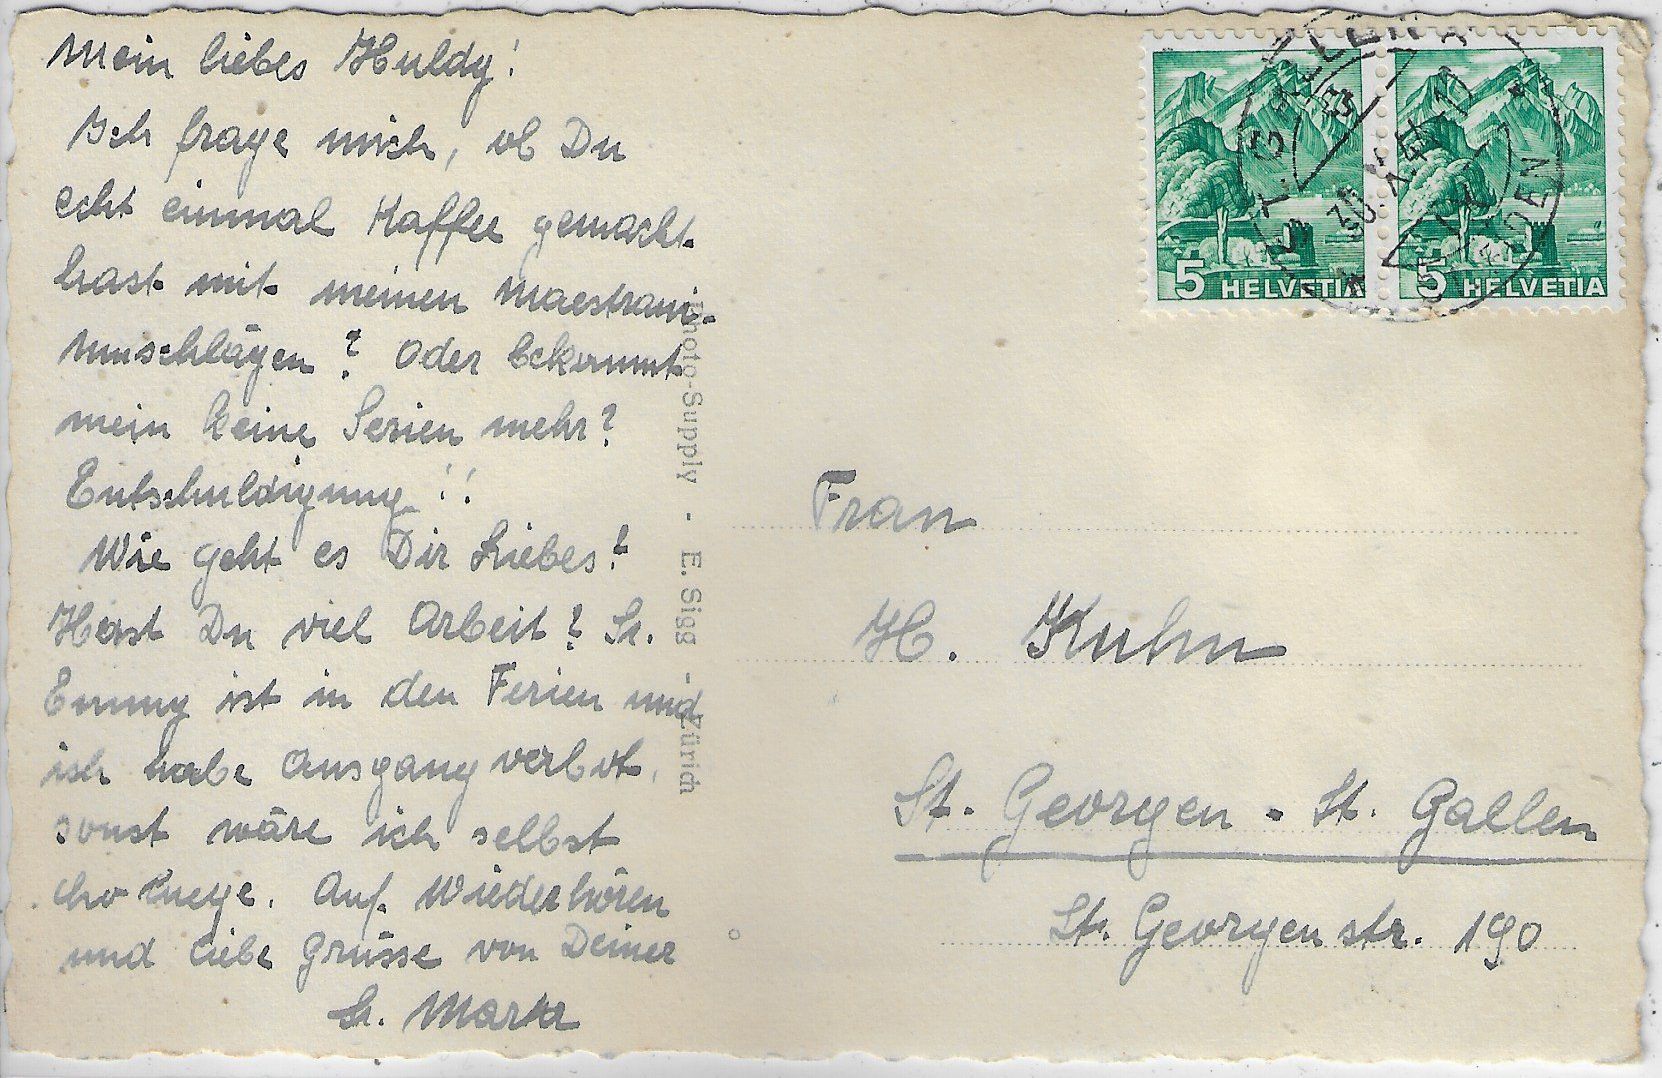 Mein liebes Huldy!
Ich frage mich, ob Du
echt einmal Kaffee gemacht
hast mit meinen Maestrani-
umschlägen? Oder bekommt
mein keine Serien mehr?
Entschuldigung!!
Wie geht es Dir Liebes?
Hast Du viel Arbeit? Sr.
Emmy ist in den Ferien und
ich habe Ausgangverbot,
sonst wäre ich selbst
cho luege. Auf Wiederhören
und liebe Grüsse von Deiner
Sr. Marta
Photo-Supply - E. Sigg - Zürich
5 HELVETIA
5 HELVETIA
ST. GALLEN
30.X.41
Frau
H. Kuhn
St. Georgen - St. Gallen
St. Georgenstr. 190